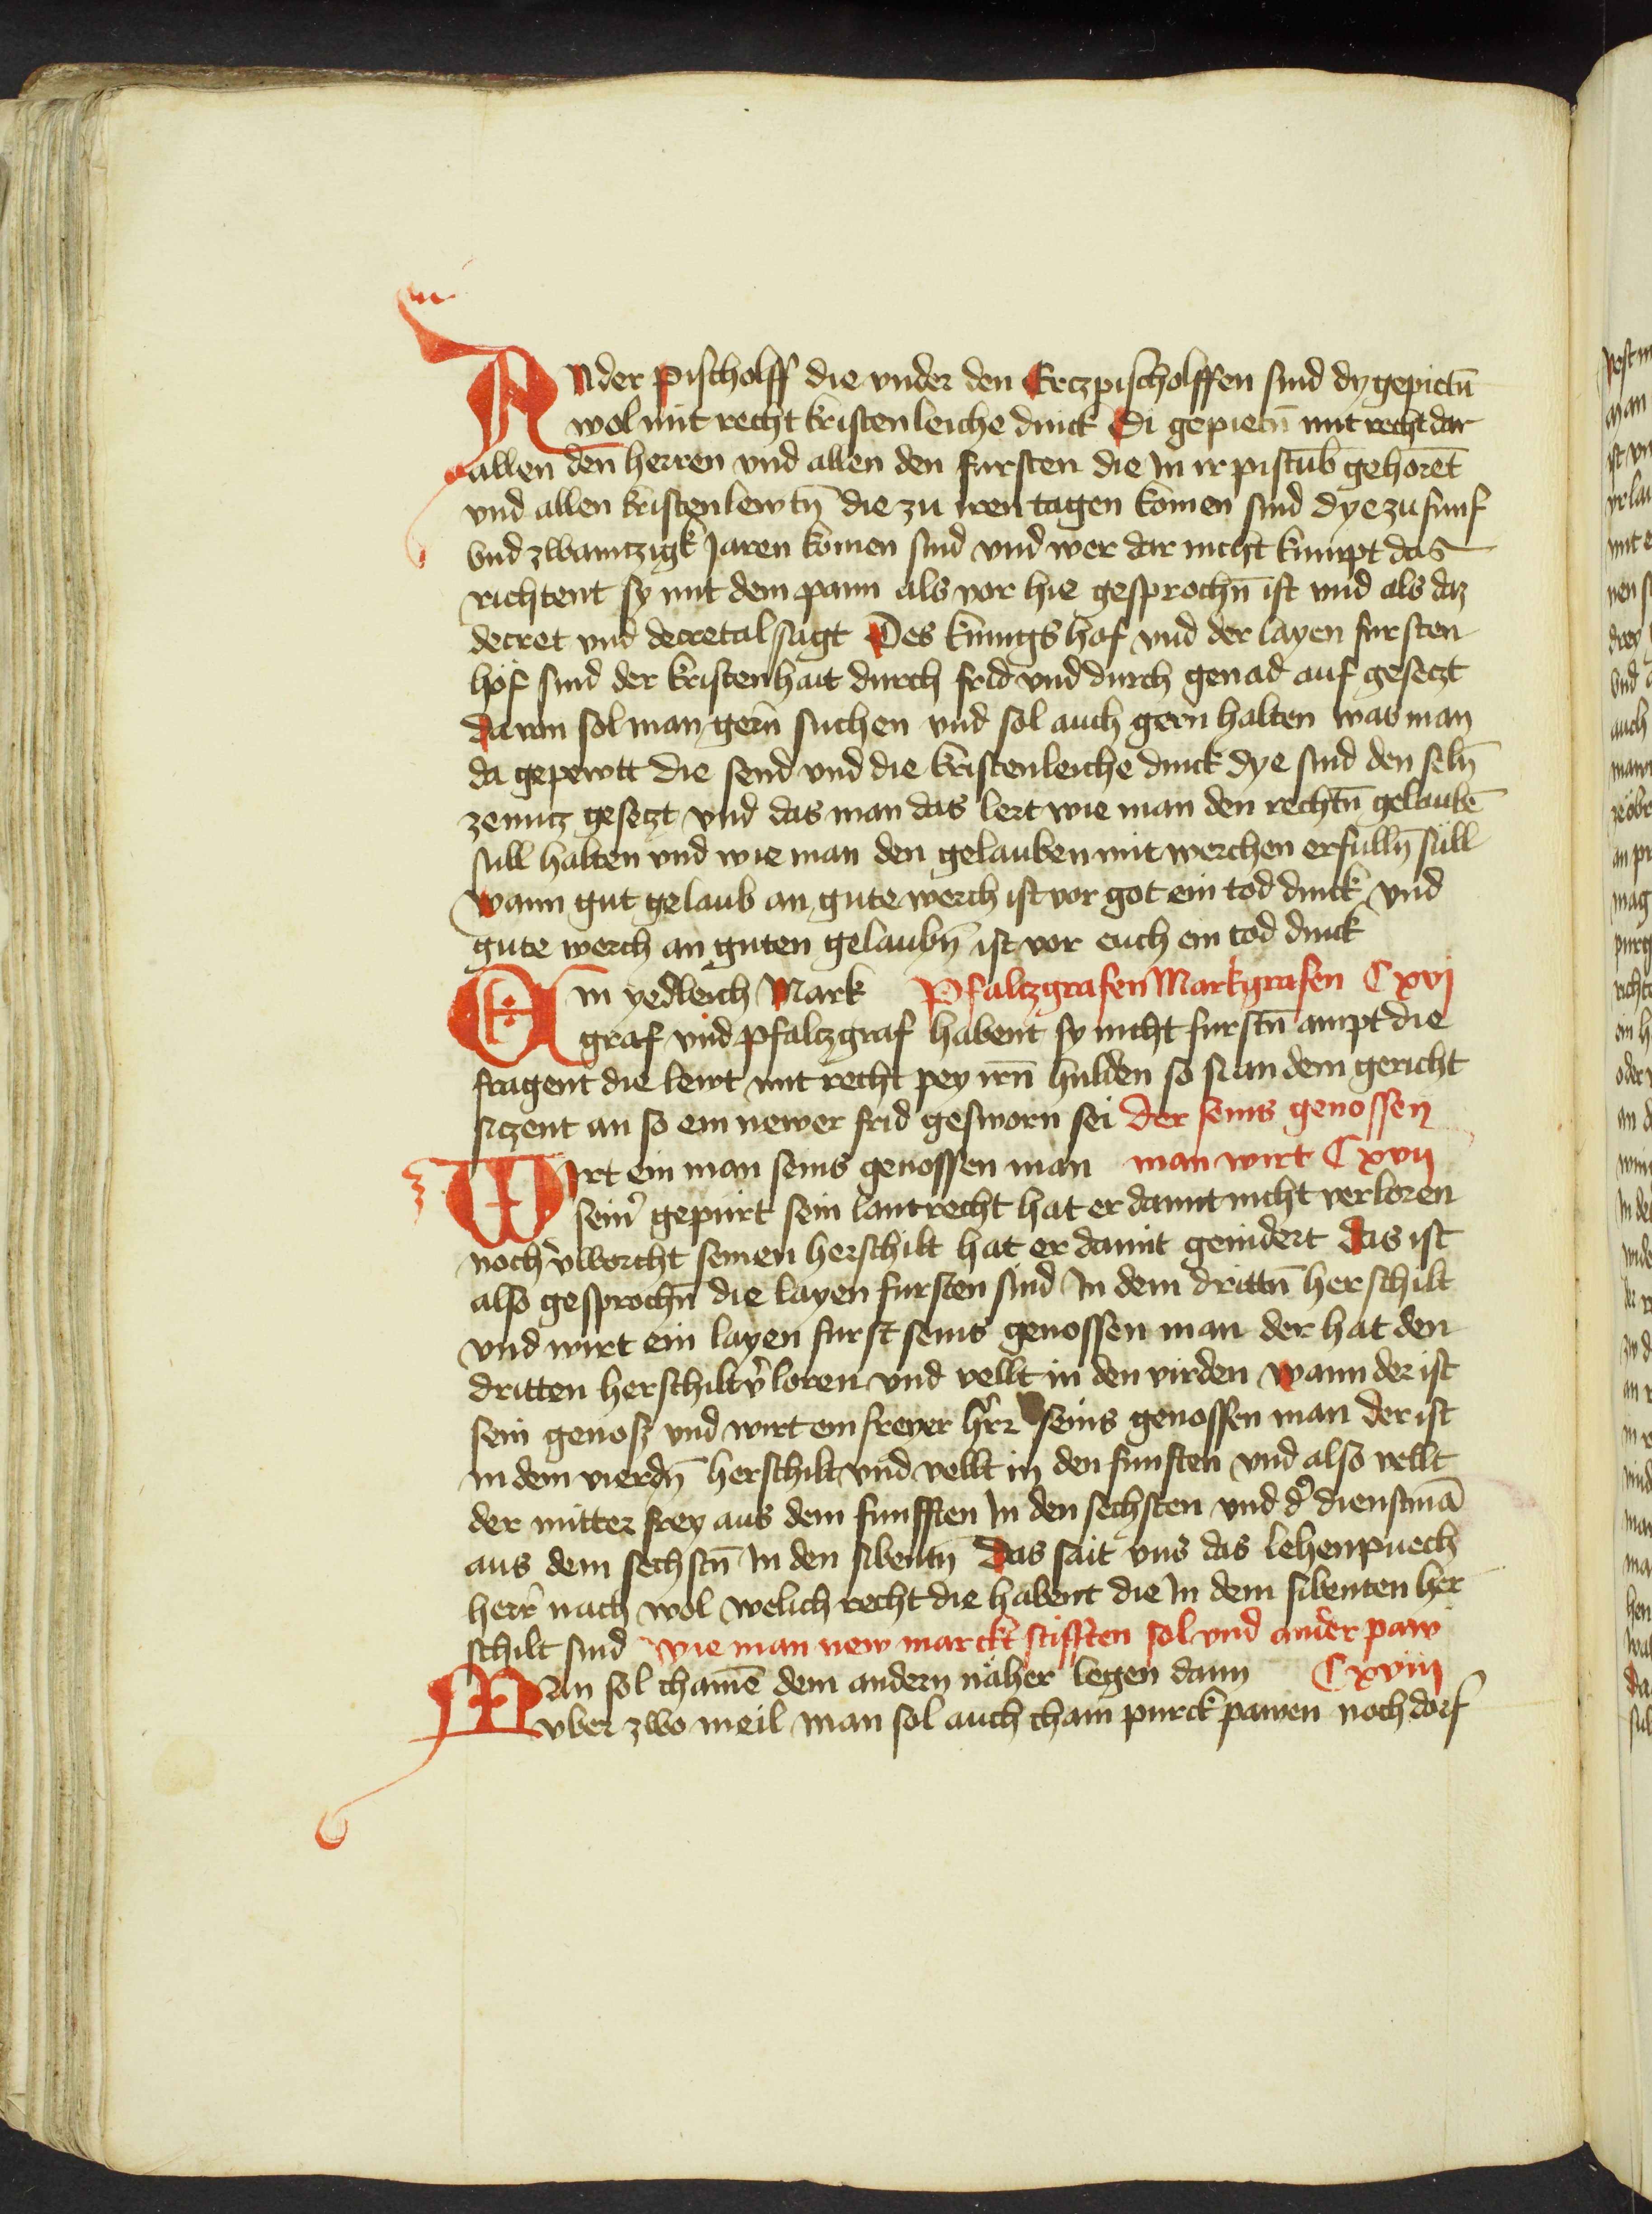 Ander pischolff die vnder den Ertzpischolffen sind dy gepietn̄
wol mit recht kristenleiche dinck Di gepietn̄ mit recht dar
allen den herren vnd allen den fursten die In ir pistub gehorēt
vnd allen kristen lewtn̄ die zu iren tagen komen sind dye zu funf
vnd zwaintzigk Jaren komen sind vnd wer dar nicht kumpt das
richtent sy mit dem pann als vor hie gesprochn̄ ist vnd als daz
decret vnd decretal sagt Des kunigs hof vnd der layen fursten
höf sind der kristenhait durch frid vnd durch genad auf gesetzt
da von sol man gern suchen vnd sol auch gern halten was man
da gepewtt die send vnd die kristenleiche dinck dye sind den seln̄
ze nutz gesetzt vnd das man das lert wie man den rechtn̄ gelaubē
sull halten vnd wie man den gelauben mit werchen erfulln̄ süll
wann gut gelaub an gute werch ist vor got ein tod dinck vnd
gute werch an guten gelaubn̄ ist vor euch ein tod dinck
Ein yedleich Mark Pfaltzgrafen Markgrafen C xvj
graf vnd pfaltzgraf habent sy nicht furstn̄ ampt die
fragent die lewt mit recht pey irn̄ hulden so si an dem gericht
siczent an so ein newer frid gesworn sei der seins genossen
Wirt ein man seins genossen man man wirt C xvij
sein' gepurt sein lantrecht hat er damit nicht verloren
noch v'worcht seinen herschilt hat er damit genidert das ist
also gesprochn̄ die layen fursten sind In dem drittn̄ herschilt
vnd wirt ein layen furst seins genossen man der hat den
dritten herschilt v'loren vnd vellt in den virden wann der ist
sein genosz vnd wirt ein freyer h'r seins genossen man der ist
in dem vierdn̄ herschilt vnd vellt in den funften vnd also vellt
der mitter frey aus dem funfften In den sechsten vnd d' dienstmā
aus dem sechstn̄ In den sibentn̄ Das sait vns das lehenpuech
herr nach wol welich recht die habent die In dem sibenten her
schilt sind wie man new marckt stifften sol vnd ander paw
Man sol chainē dem andern näher legen dann C xviij
vber zwo meil man sol auch chain purck pawen noch dorf